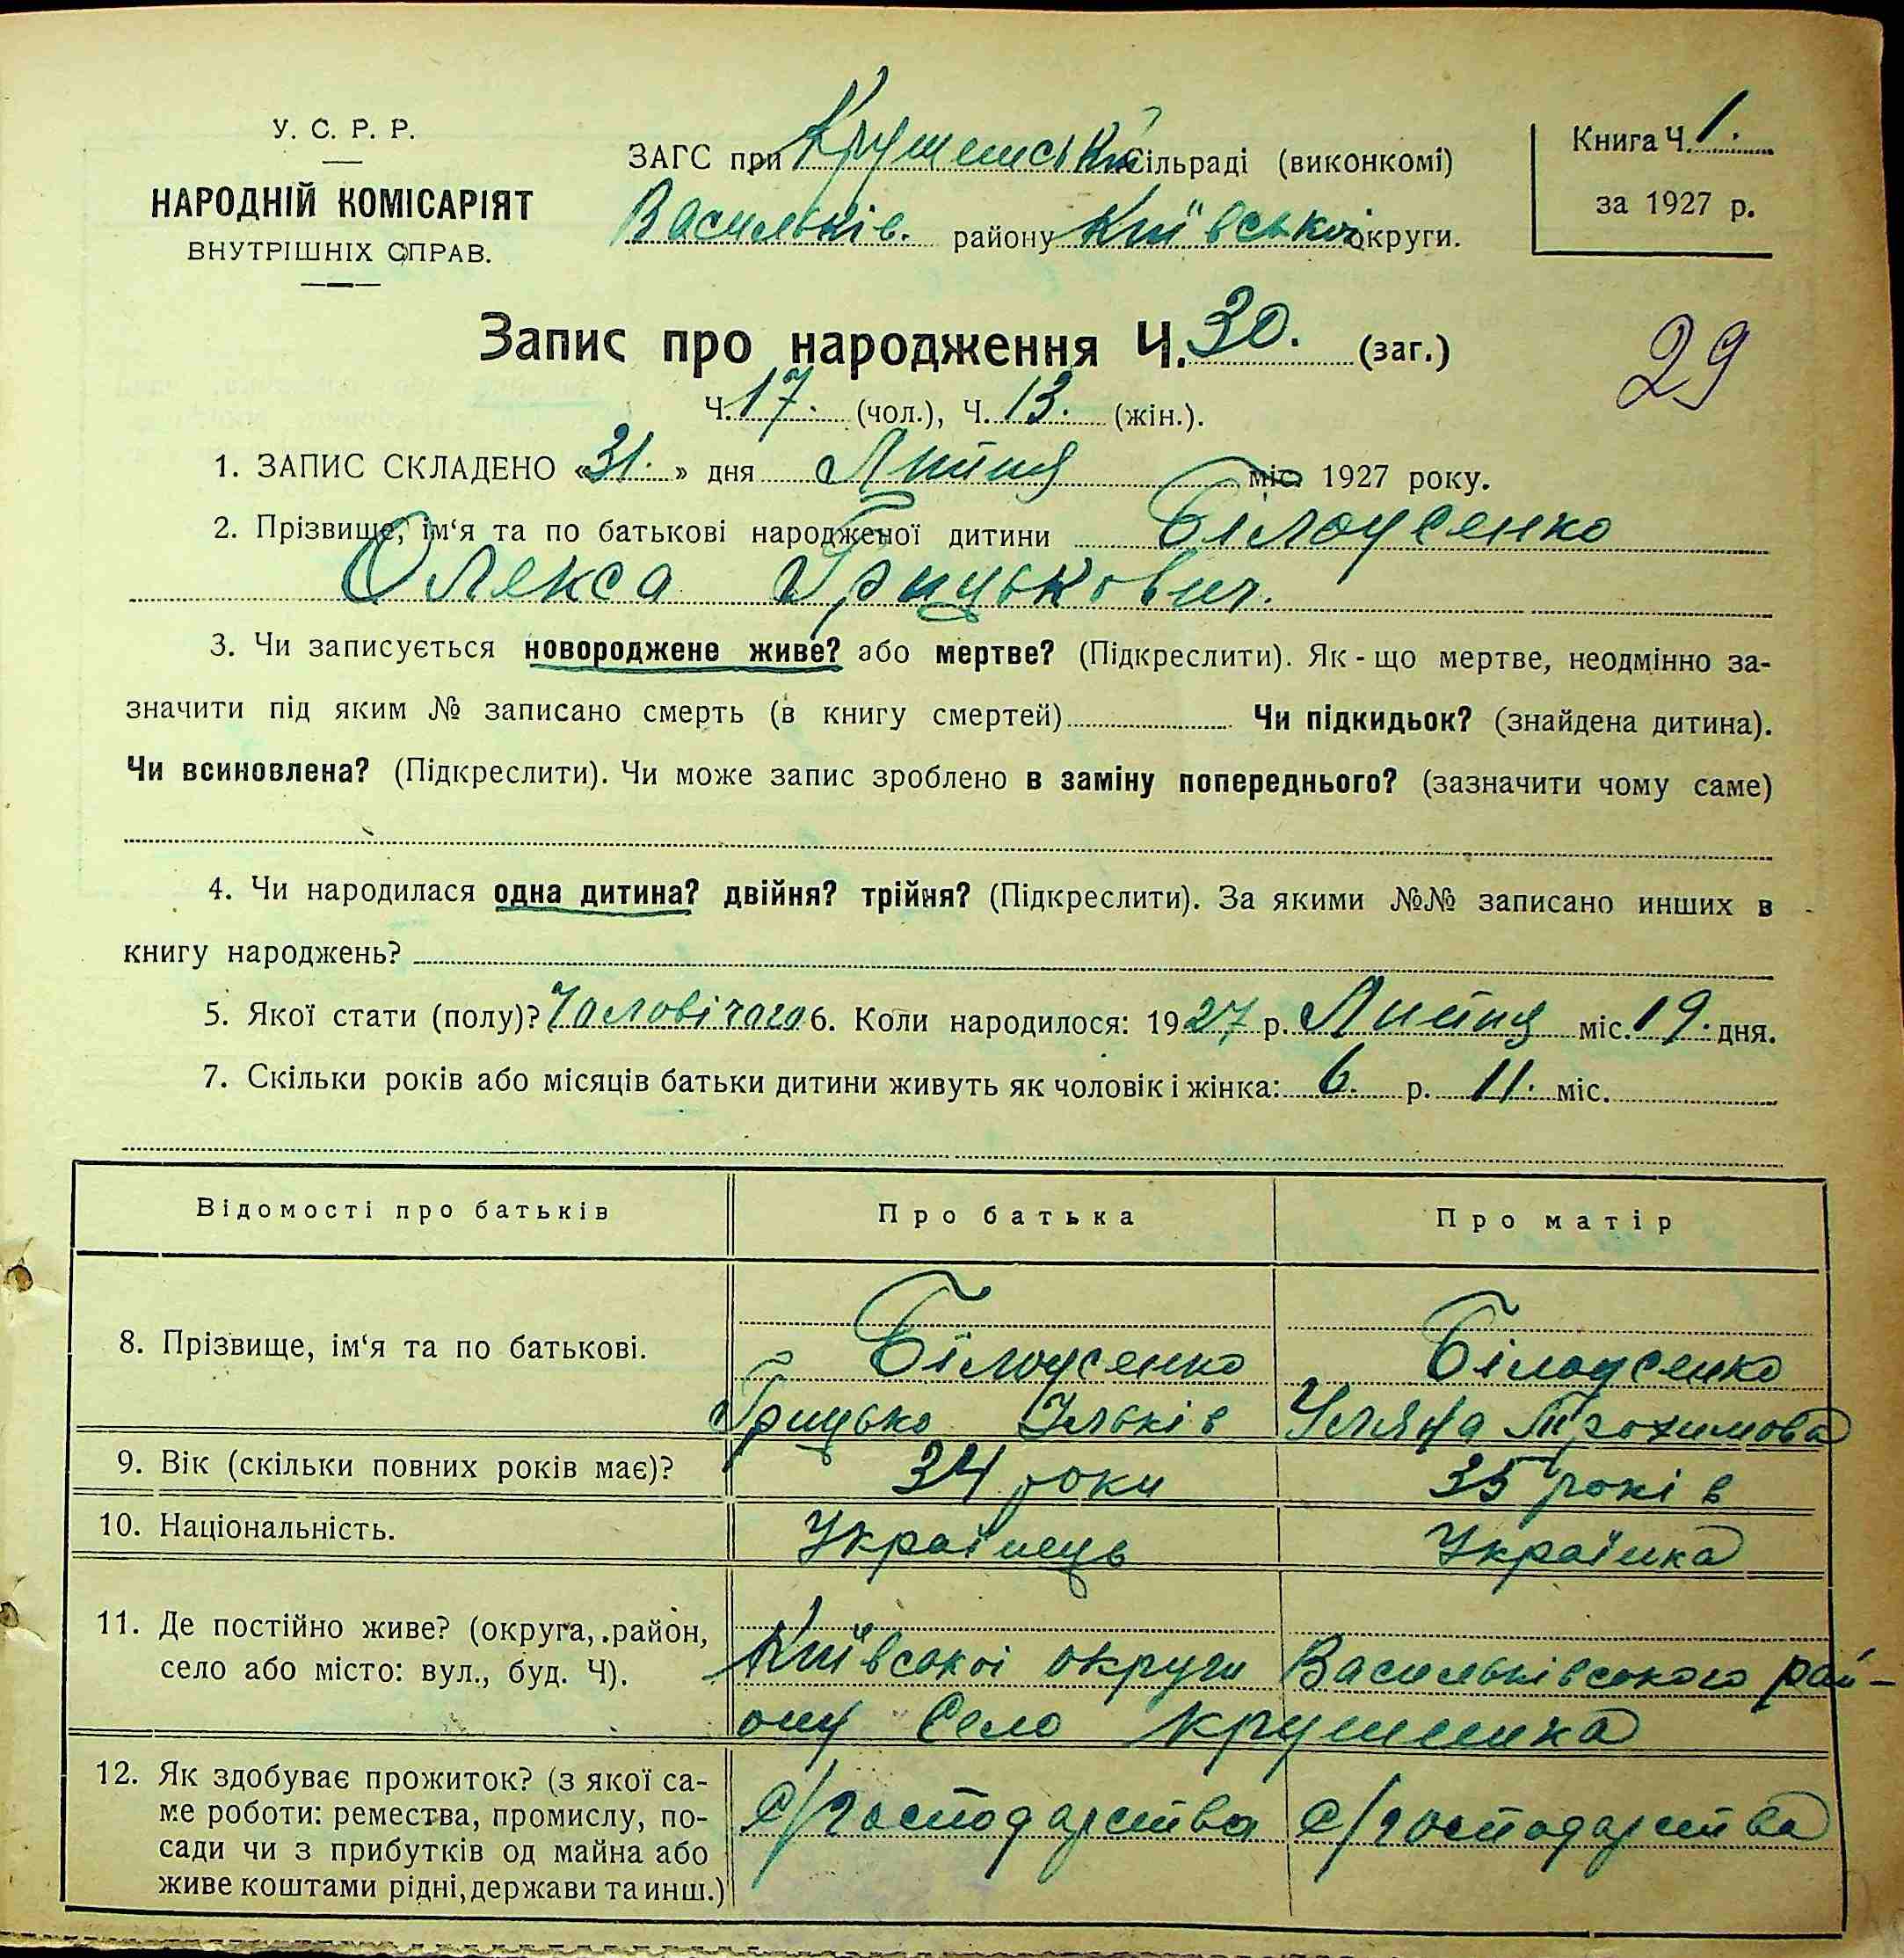 У. С. Р. Р.
НАРОДНІЙ КОМІСАРІЯТ
ВНУТРІШНІХ СПРАВ.
ЗАГС при Крушинській сільраді (виконкомі)
Васильків. району Київської округи.
Книга Ч. 1.
за 1927 р.
Запис про народження Ч. 30. (заг.)
29
Ч. 17. (чол.), Ч. 13. (жін.).
1. ЗАПИС СКЛАДЕНО «31.» дня Липця міс. 1927 року.
2. Прізвище, ім‘я та по батькові народженої дитини Білоусенко
Олекса Грицькович.
3. Чи записується новороджене живе? або мертве? (Підкреслити). Як-що мертве, неодмінно за-
значити під яким № записано смерть (в книгу смертей) Чи підкидьок? (знайдена дитина).
Чи всиновлена? (Підкреслити). Чи може запис зроблено в заміну попереднього? (зазначити чому саме)
4. Чи народилася одна дитина? двійня? трійня? (Підкреслити). За якими №№ записано инших в
книгу народжень?
5. Якої стати (полу)? Чоловічого 6. Коли народилося: 1927 р. Липця міс. 19. дня.
7. Скільки років або місяців батьки дитини живуть як чоловік і жінка: 6. р. 11. міс.
Відомості про батьків Про батька Про матір
8. Прізвище, ім‘я та по батькові.
Білоусенко
Грицько Ільків
Білоусенко
Уляна Трохимова
9. Вік (скільки повних років має)? 34 роки 35 років
10. Національність. Українець Українка
11. Де постійно живе? (округа, район,
село або місто: вул., буд. Ч).
Київської округи Васильківського рай-
ону Село Крушинка
12. Як здобуває прожиток? (з якої са-
ме роботи: ремества, промислу, по-
сади чи з прибутків од майна або
живе коштами рідні, держави та инш.)
с/господарства с/господарства